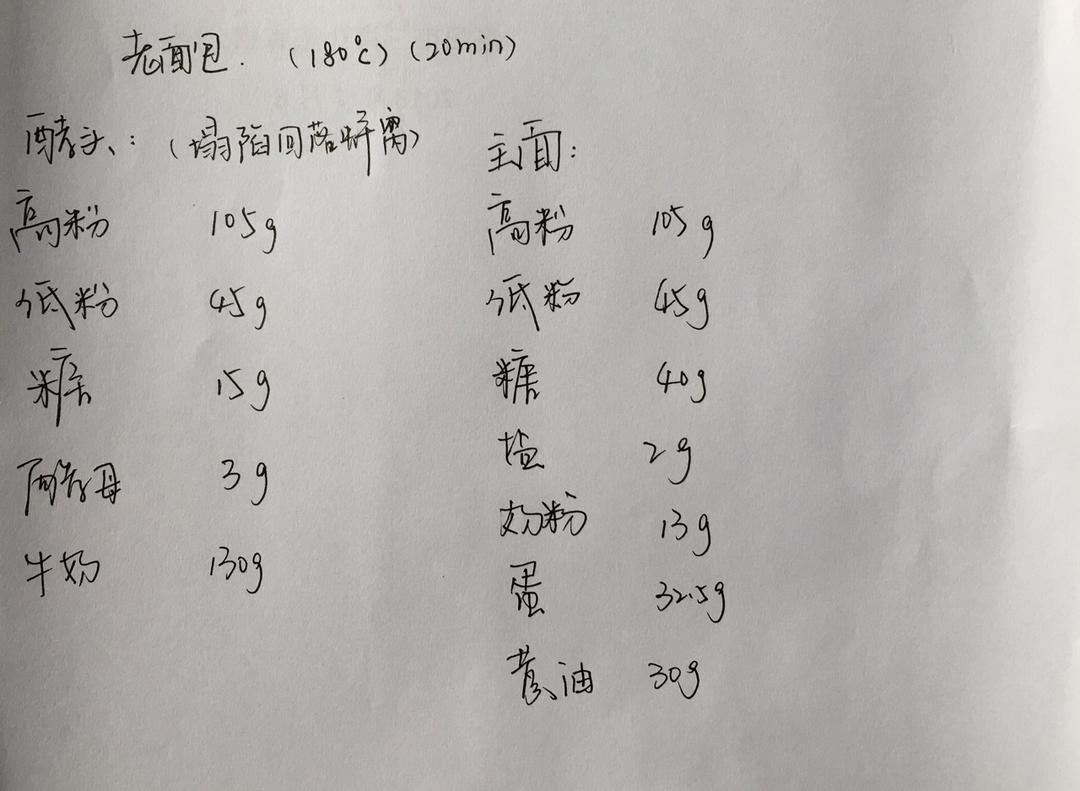 老面包. (180℃) (20min)
酵头: (塌陷回落蜂窝)
高粉 105g
低粉 45g
糖 15g
酵母 3g
牛奶 130g
主面:
高粉 105g
低粉 45g
糖 40g
盐 2g
奶粉 13g
蛋 32.5g
黄油 30g